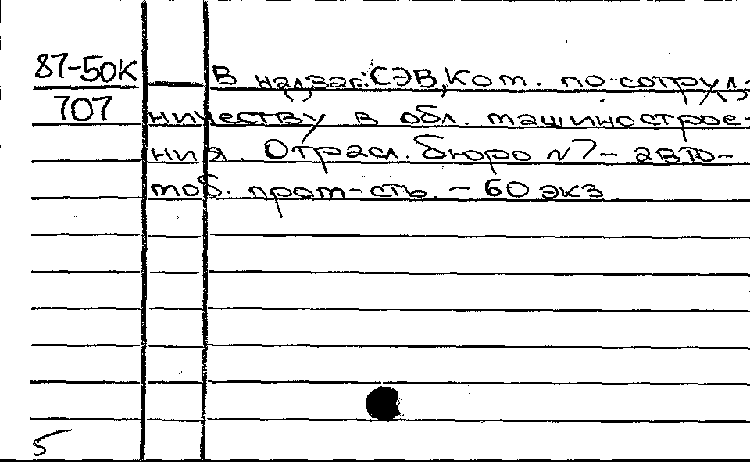 87-50К
707
В надзаг: СЭВ, Ком. по сотруд-
ничеству в обл. машинострое-
ния. Отрасл. бюро №7 - авто-
моб. пром-сть. - 60 экз
5